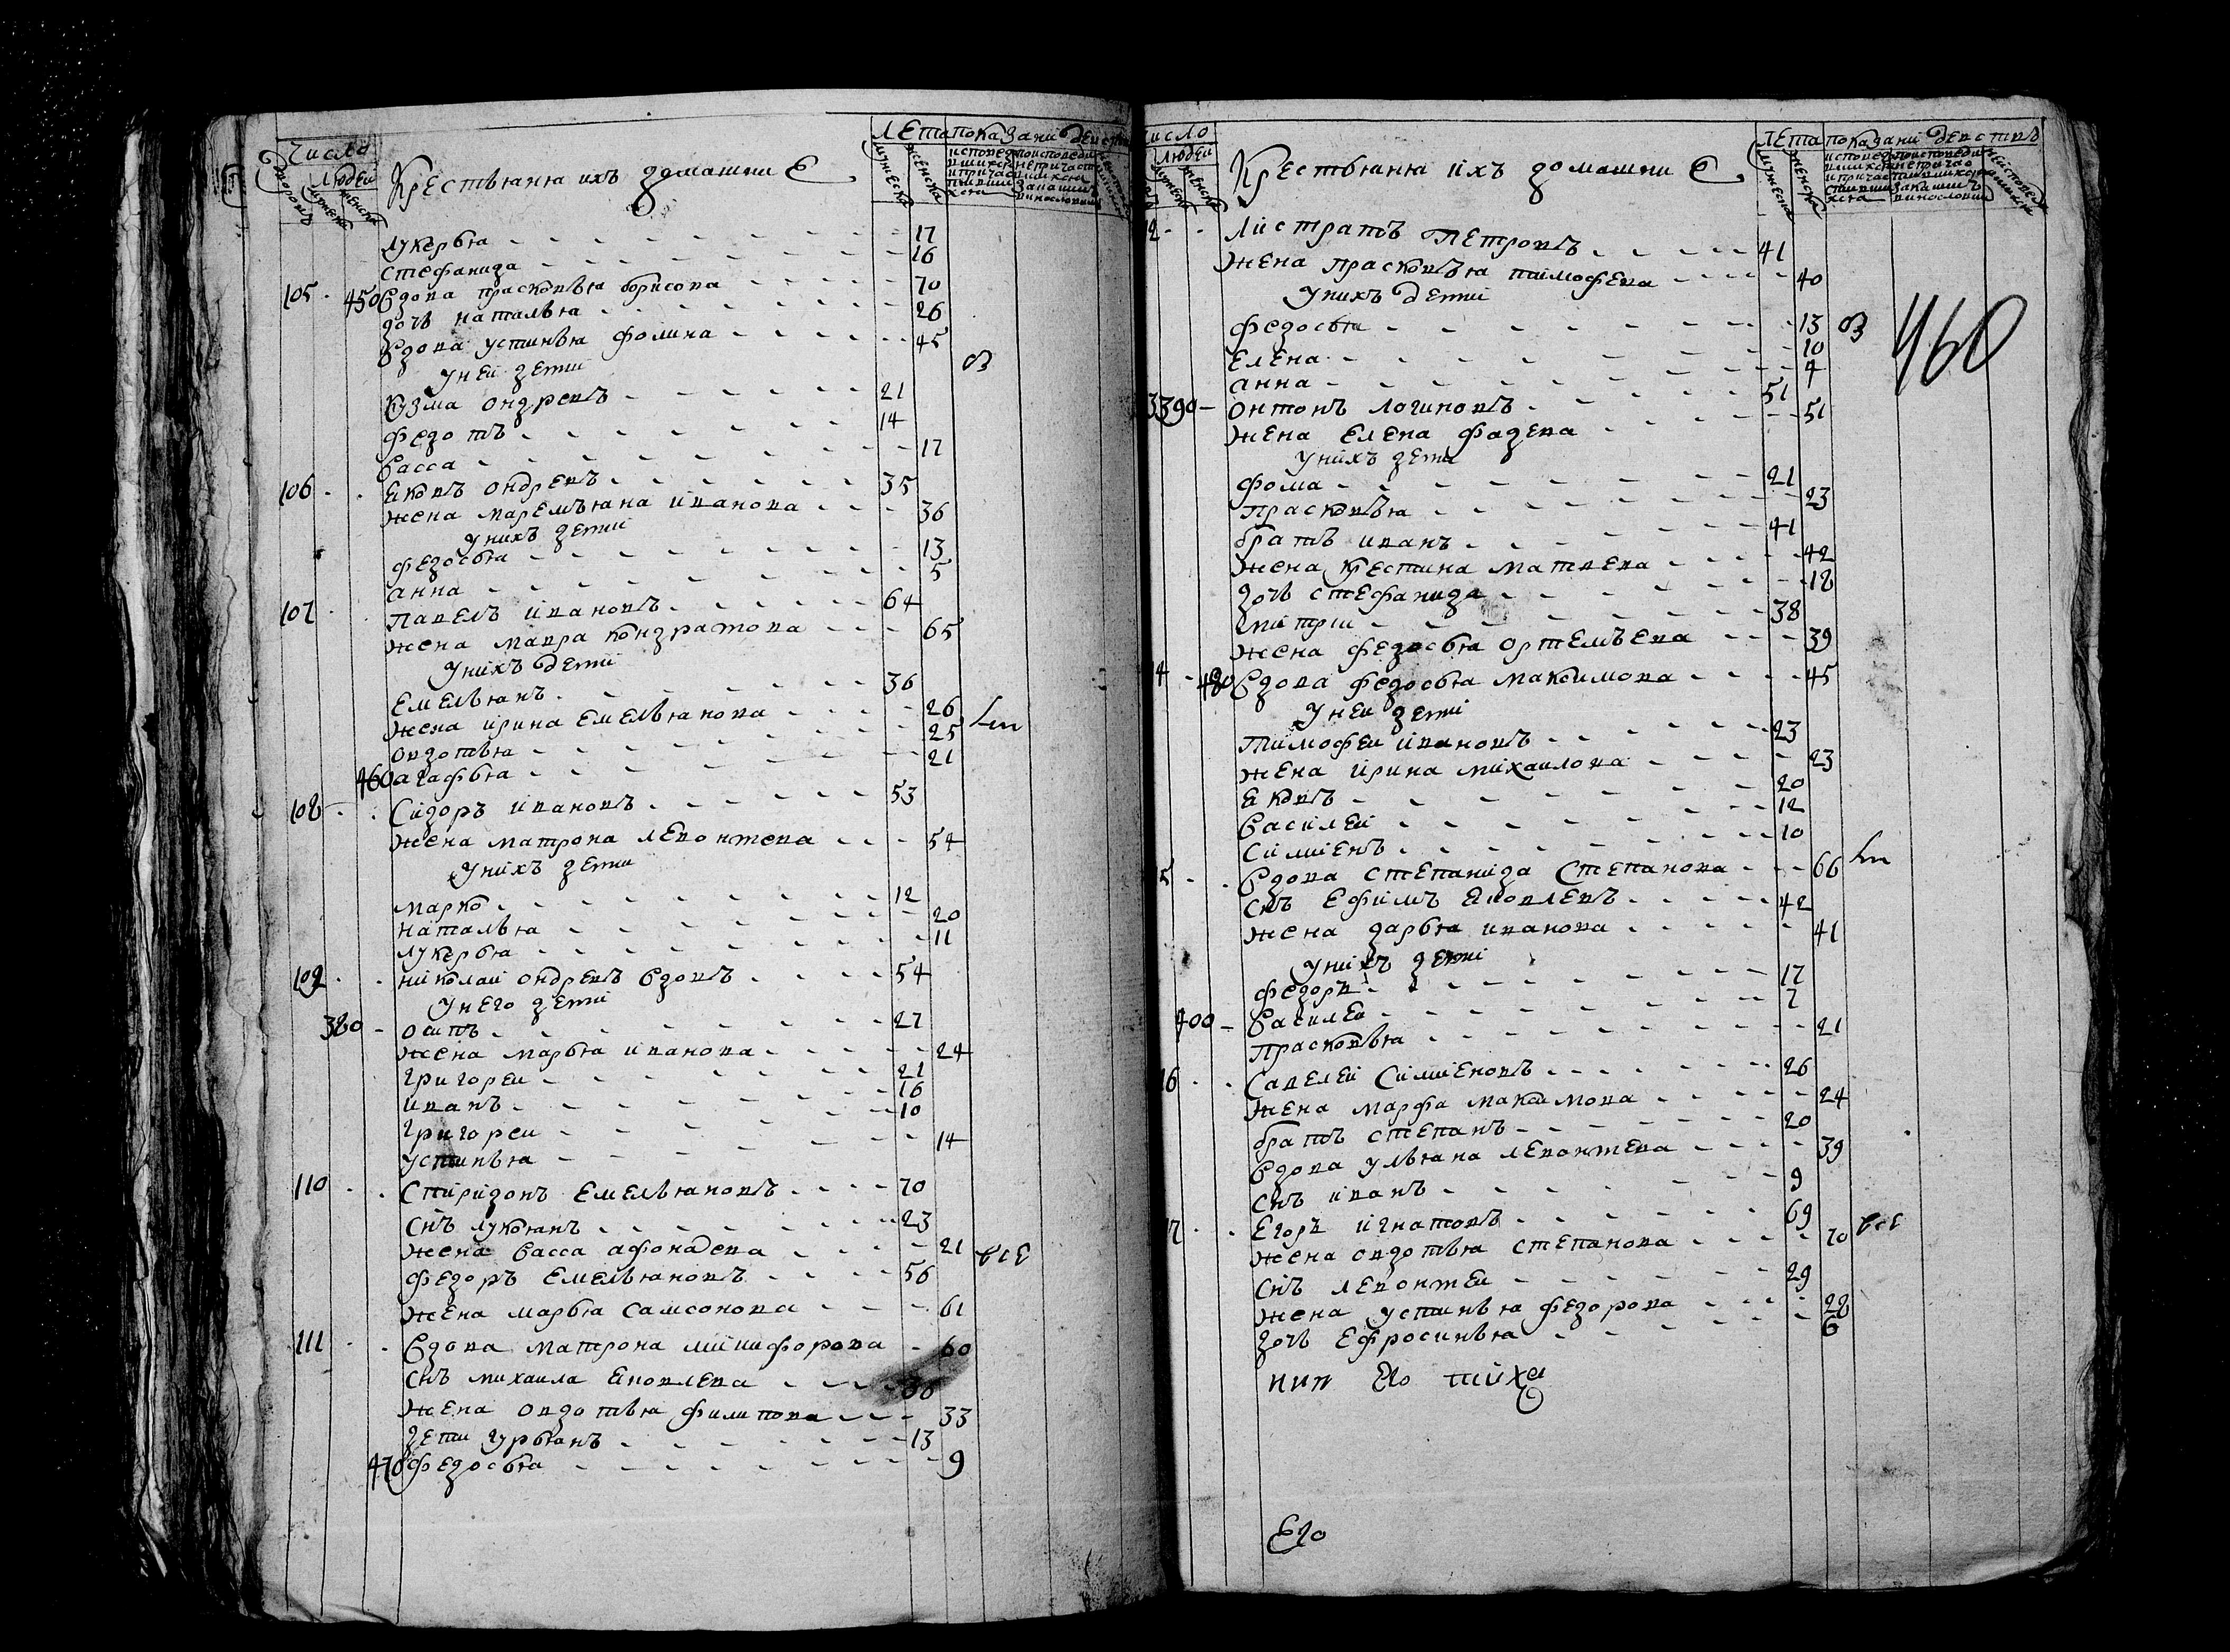 Число
Людей
дворовъ
мужеска
женска
Крестьяня ихъ домашния
Лета
мужеска
женска
показани действ
Лукерья 17
Стефанида 16
105 450 Вдова прасковья борисова 70
дочь наталья 26
Вдова устинья фомина 45
У неи дети
Кузма ондревъ 21
федотъ 14
Васса 17
106 Яковъ ондревъ 35
жена маремьяна иванова 36
У нихъ дети
федосья 13
анна 5
107 Павелъ ивановъ 64
жена мавра кондратова 65
У нихъ дети
Емельянъ 36
жена ирина Емельянова 26
овдотья 25
460 агафья 21
108 Сидоръ ивановъ 53
жена матрона левонтева 54
У нихъ дети
марко 12
наталья 20
лукерья 11
109 николаи ондревъ вдовъ 54
У него дети
380 осипъ 27
жена марья иванова 24
григореи 21
иванъ 16
григореи 10
устинья 14
110 Спиридонъ Емельяновъ 70
снъ лукоянъ 23
жена Васса афонасева 21
все
федоръ Емельяновъ 56
жена марья самсонова 61
111 Вдова матрона никифорова 60
снъ михаила яковлева
жена овдотья филипова 33
дети гурьянъ 13
470 федосья 9
число
людей
мужеска
женска
Крестьяня ихъ домашния
Лета
мужеска
женска
показани действъ
12 Листратъ Петровъ 41
жена прасковья тимофева 40
У нихъ дети
федосья 13
460
Елена 10
анна 4
13 390 онтонъ логиновъ 51
жена Елена фадева 51
У нихъ дети
фома 21
прасковья 23
братъ иванъ 41
жена крестина матвева 42
дочь стефанида 18
митри 38
жена федосья ортемьева 39
14 480 Вдова федосья максимова 45
У неи дети
тимофеи ивановъ 23
жена ирина михаилова 23
яковъ 20
Василеи 12
Симиенъ 10
15 Вдова степанида Степанова 66
снъ Ефимъ яковлевъ 42
жена дарья иванова 41
У нихъ дети
федоръ 17
400 Василеи 7
прасковья 21
16 Савелеи Симиеновъ 26
жена марфа максимова 24
братъ степанъ 20
Вдова ульяна левонтева 39
снъ иванъ 9
17 Егоръ игнатовъ 69
жена овдотья степанова 70
все
снъ левонтеи 29
жена устинья федорова 28
дочь Ефросинья 6
Его